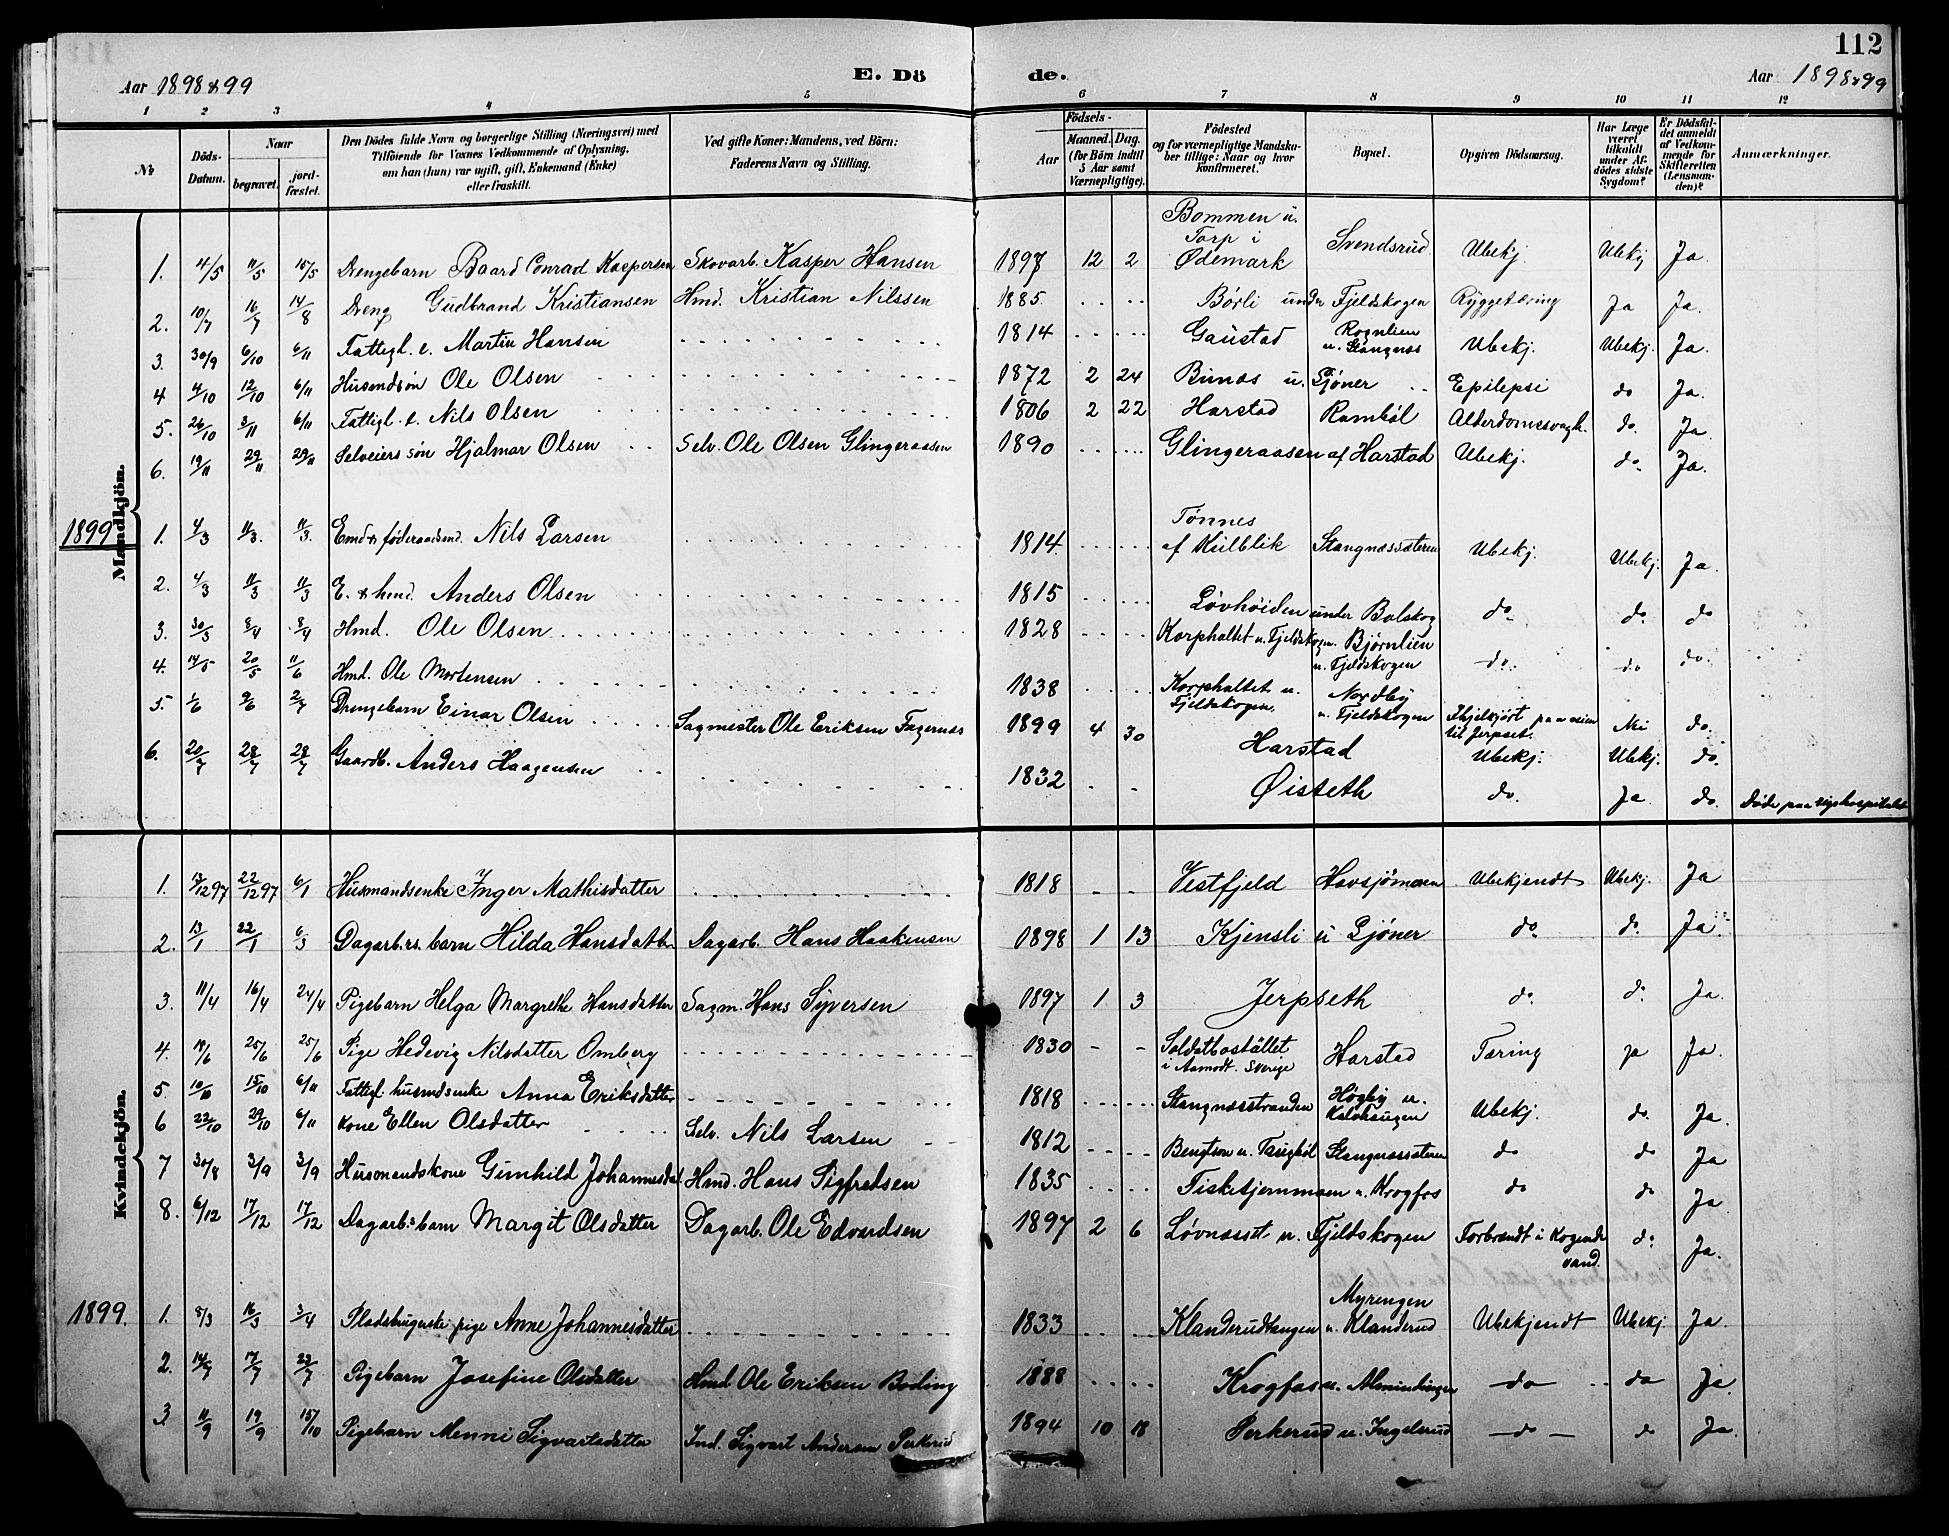 112
Aar 1898 & 99 E. Dö de. Aar 1898 & 99
1 2 3 4 5 6 7 8 9 10 11 12
No Döds-Datum. Naar begravet. jord-fæstet. Den Dödes fulde Navn og borgerlige Stilling (Næringsvei) med Tilföiende for Voxnes Vedkommende af Oplysning, om han (hun) var ugift, gift, Enkemand (Enke) eller fraskilt. Ved gifte Koner: Mandens, ved Börn: Faderens Navn og Stilling. Födsels- Aar Maaned. Dag. (for Börn indtil 5 Aar samt Værnepligtige). Födested og for værnepligtige Mandskaber tillige: Naar og hvor konfirmeret. Bopæl. Opgiven Dödsaarsag. Har Læge været tilkaldt under Afdödes sidste Sygdom? Er Dödsfaldet anmeldt af Vedkommende for Skifteretten (Lensmanden)? Anmærkninger.
Mandkjön.
1. 4/5 11/5 15/5 Drengebarn Baard Conrad Kaspersen Skovarb. Kasper Hansen 1897 12 2 Bommen u. Torp i Ødemark Svendsrud Ubekj. Ubekj Ja.
2. 10/7 16/7 14/8 Dreng Gudbrand Kristiansen Hmd. Kristian Nilssen 1885. Børli under Fjeldskogen Ryggetæring Ja Ja.
3. 30/9 6/10 6/11 Fattigl. e. Martin Hansen 1814 Gaustad Rognlien u. Stangnæs Ubekj. Ubekj. Ja.
4 4/10 12/10 6/11 Husmdsøn Ole Olsen 1872 2 24 Bunæs u. Gjöner Epilepsi do Ja.
5. 26/10 3/11 6/11 Fattigl. e. Nils Olsen 1806 2 22 Harstad Rambøl Alderdomssvagh. do. Ja
6. 19/11 29/11 29/11 Selveiers søn Hjalmar Olsen Selv. Ole Olsen Glingeraasen 1890 Glingeraasen af Harstad Ubekj. do Ja.
1899
1. 4/3 11/3. 11/3. Emd. & føderaadsmd. Nils Larsen 1814 Tønnes af Kulblik Stangnæssæteren Ubekj. Ubekj. Ja.
2. 4/3 11/3 11/3 E. & hmd. Anders Olsen 1815 Løvhöiden under Bolskog do. do do
3. 30/3 8/4 8/4 Hmd. Ole Olsen 1828 Korphaltet u. Fjeldskogen. Bjørnlien u. Fjeldskogen do. do do.
4. 14/5 20/5 11/6 Hmd. Ole Mortensen 1838 Korphaltet u. Fjeldskogen. Nordby u. Fjeldskogen Ihjelkjört paa veien til Jerpset. Nei do.
5. 1/6 9/6 2/7 Drengebarn Einar Olsen Sagmester Ole Eriksen Fagernæs 1899 4 30 Harstad Ubekj. Ubekj. do.
6. 20/7 28/7 28/7 Gaardb. Anders Haagensen 1832 Øiseth do. Ja do. Døde paa rigshospitalet
Kvindekjön.
1. 13/12 97 22/12 97 6/1 Husmandsenke Inger Mathisdatter 1818 Vestfjeld Havsjömoen Ubekjendt Ubekj. Ja
2. 13/1 22/1 6/3 Dagarb.rs. barn Hilda Hansdatter Dagarb. Hans Haakensen 1898 1 13 Kjensli u Gjöner do. do. Ja.
3. 11/4 16/4 24/4 Pigebarn Helga Margrethe Hansdatter Sagm. Hans Syversen 1897 1 3 Jerpseth do. do. Ja.
4. 18/6 25/6 25/6 Pige Hedevig Nilsdatter Omberg 1830 Soldatbostället i Aamodt. Sverige Harstad Tæring ja Ja.
5. 10/10 15/10 6/11 Fattigl. husmdsenke Anna Eriksdatter 1818 Stangnæsstranden Högby u. Kalshaugen Ubekj. do. Ja.
6 22/10 29/10 6/11 Kone Ellen Olsdatter Selv. Nils Larsen 1812 Bengtson u. Taugböl Stangnæssæteren do do Ja
7 30/8 3/9 3/9 Husmandskone Gunhild Johannesdat. Hmd. Hans Sigfredsen 1835 Fisketjernmoen u. Krogfos do do Ja.
8. 6/12 17/12 17/12 Dagarb.s barn Margit Olsdatter Dagarb. Ole Edvardsen 1897 2 6 Løvnæsset u. Fjeldskogen Forbrændt i kogende vand. do Ja.
1899.
1. 8/3 16/3 3/4 Pladsbrugerske pige Anne Johannesdatter 1833 Klanderudhaugen Myrengen u. Klanderud Ubekjendt Ubekj Ja.
2. 14/7 17/7 23/7 Pigebarn Josefine Olsdatter Hmd. Ole Eriksen Boding 1888 Krogfos u. Almindingen do do Ja.
3. 11/9 19/9 15/10 Pigebarn Menni Sigvartsdatter Ind. Sigvart Andersen Perkerud 1894 10 18 Perkerud u. Ingelsrud do do Ja.